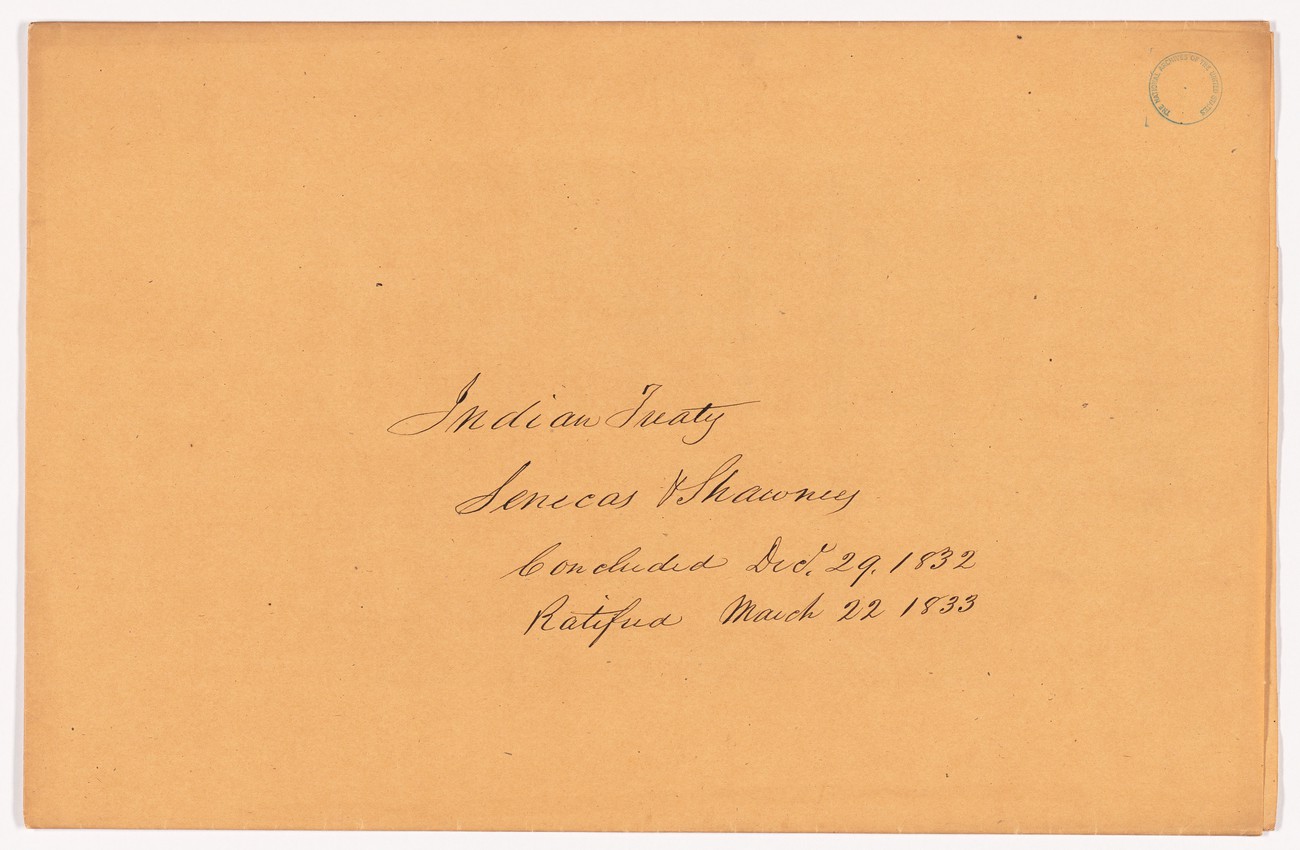 THE NATIONAL ARCHIVES OF THE UNITED STATES
Indian Treaty
Senecas & Shawnees
Concluded Dec. 29. 1832
Ratified March 22 1833